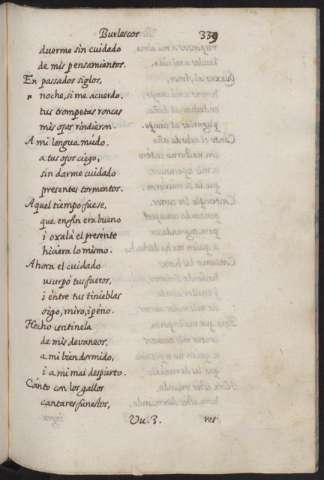 Burlescos 339
duerme sin cuidado
de mis pensamientos.
En passados siglos,
noche, si me acuerdo,
tus trompetas roncas
mis ojos rindieron.
A mi lengua mudo,
a tus ojos ciego,
sin darme cuidado
presentes tormentos.
Aquel tiempo fuese,
que enfin era bueno
i oxalà el presente
hiciera lo mismo.
Ahora el cuidado
usurpò tus fueros,
i entre tus tinieblas
oigo, miro, i peno.
Hecho centinela
de mis devaneos,
a mi bien dormido,
i a mi mal despierto.
Canto con los gallos
cantares funestos,
Vu. 3. ver